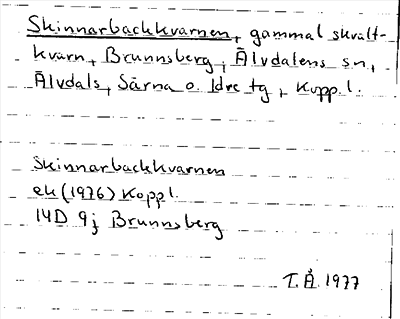 Skinnarbackkvarnen, gammal skvalt-
kvarn, Brunnsberg, Älvdalens sn,
Älvdals, Särna o. Idre tg, Kopp.l.
Skinnarbackkvarnen
ek (1976) Koppl.
14D 9j Brunnsberg
T.Å. 1977